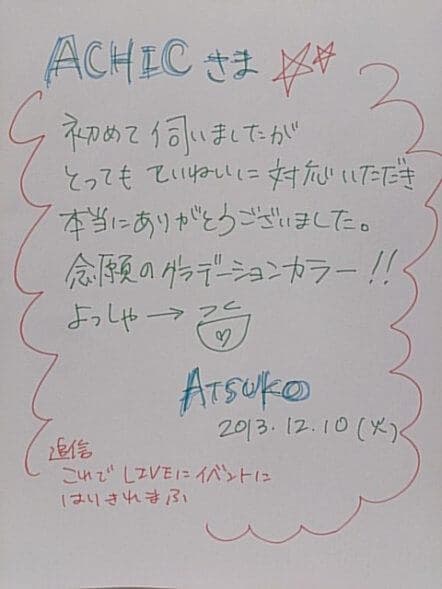 ACHICさま
初めて伺いましたが
とってもていねいに対応いただき
本当にありがとうございました。
念願のグラデーションカラー!!
よっしゃー→
ATSUKO
2013.12.10(火)
追信
これでLIVEにイベントに
はりきれまふ